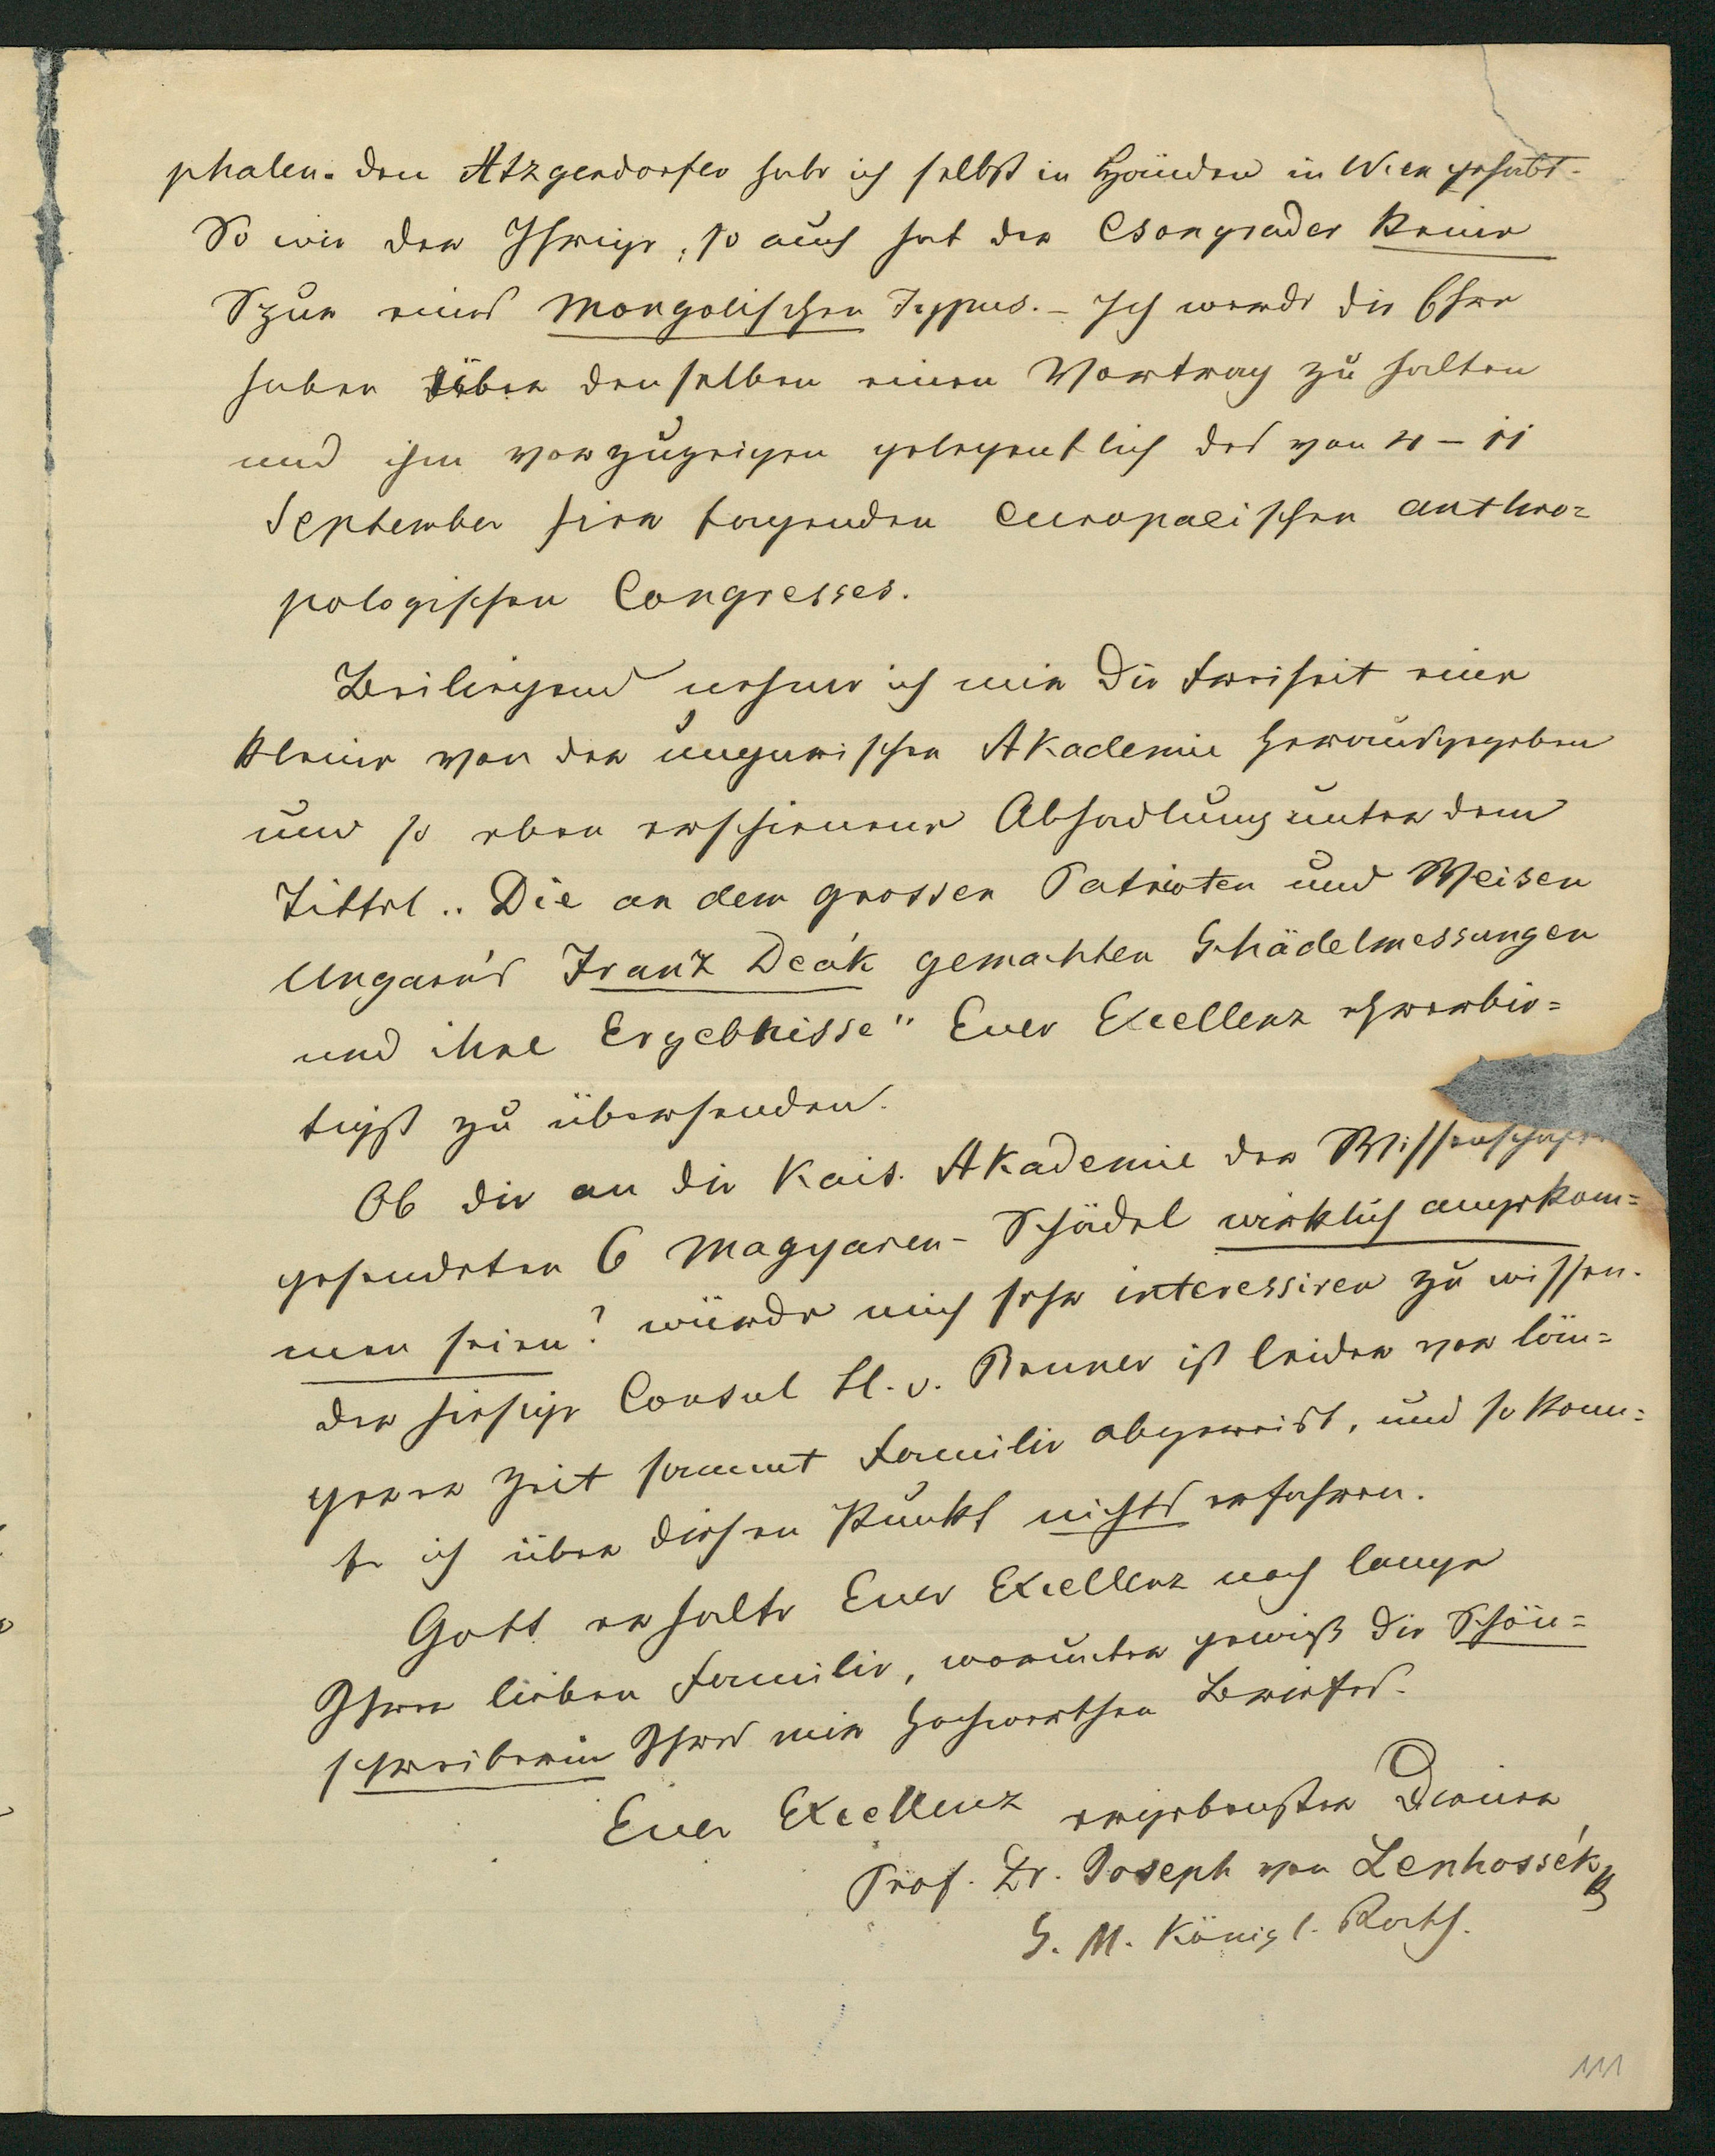 phalen. den Atzgersdorfer habe ich selbst in Händen in Wien gehabt.
So wie der Ihrige, so auch hat der Csongrader keine
Spur eines Mongolischen Typus. – Ich werde die Ehre
haben über denselben einen Vortrag zu halten
und ihn vorzuzeigen gelegentlich des von 4 – 11
September hier tagenden europaeischen anthro=
pologischen Congresses.
Beiliegend nehme ich mir die Freiheit eine
kleine von der ungarischen Akademie herausgegeben
und so eben erschienene Abhadlung unter dem
Tittel „Die an dem grossen Patrioten und Weisen
Ungarn's Franz Deák gemachten Schädelmessungen
und ihre Ergebnisse" Euer Excellenz ehrerbie=
tigst zu übersenden.
Ob die an die Kais. Akademie der Wissenschaften
gesendeten 6 Magyaren-Schädel wirklich angekom=
men seien? würde mich sehr interessiren zu wissen.
der hiesige Consul H. v. Bruner ist leider vor län=
gerer Zeit sammt Familie abgereist, und so konn=
te ich über diesen Punkt nichts erfahren.
Gott erhalte Euer Excellenz noch lange
Ihrer lieben Familie, worunter gewiß die Schön=
schreiberin Ihres mir hochwerthen Briefes.
Euer Excellenz ergebenster Diener
Prof. Dr. Joseph von Lenhossék
S. M. Königl. Rath.
111